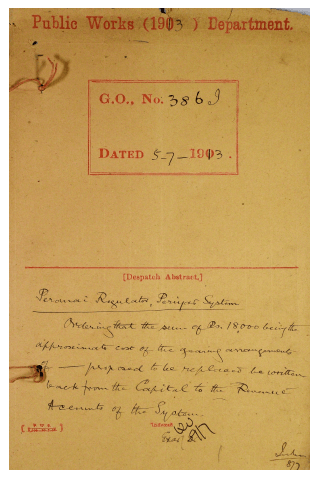 Public Works (1903) Department.
G.O., No. 386 I
DATED 5-7-1903.
[Despatch Abstract.]
Peranai Regulator, Periyar System
Ordering that the sum of Rs. 18,000 being the
approximate cost of the gearing arrangements
of — proposed to be replaced be written
back from the Capital to the Revenue
Accounts of the System.
Indexed